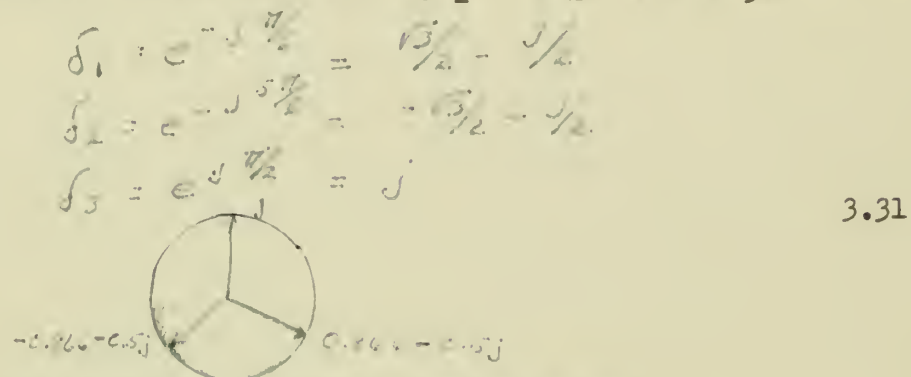 δ₁ = e^{-jπ/6} = √3/2 - j/2
δ₂ = e^{-j5π/6} = -√3/2 - j/2
δ₃ = e^{jπ/2} = j
3.31
j
-0.866-0.5j 0.866-0.5j